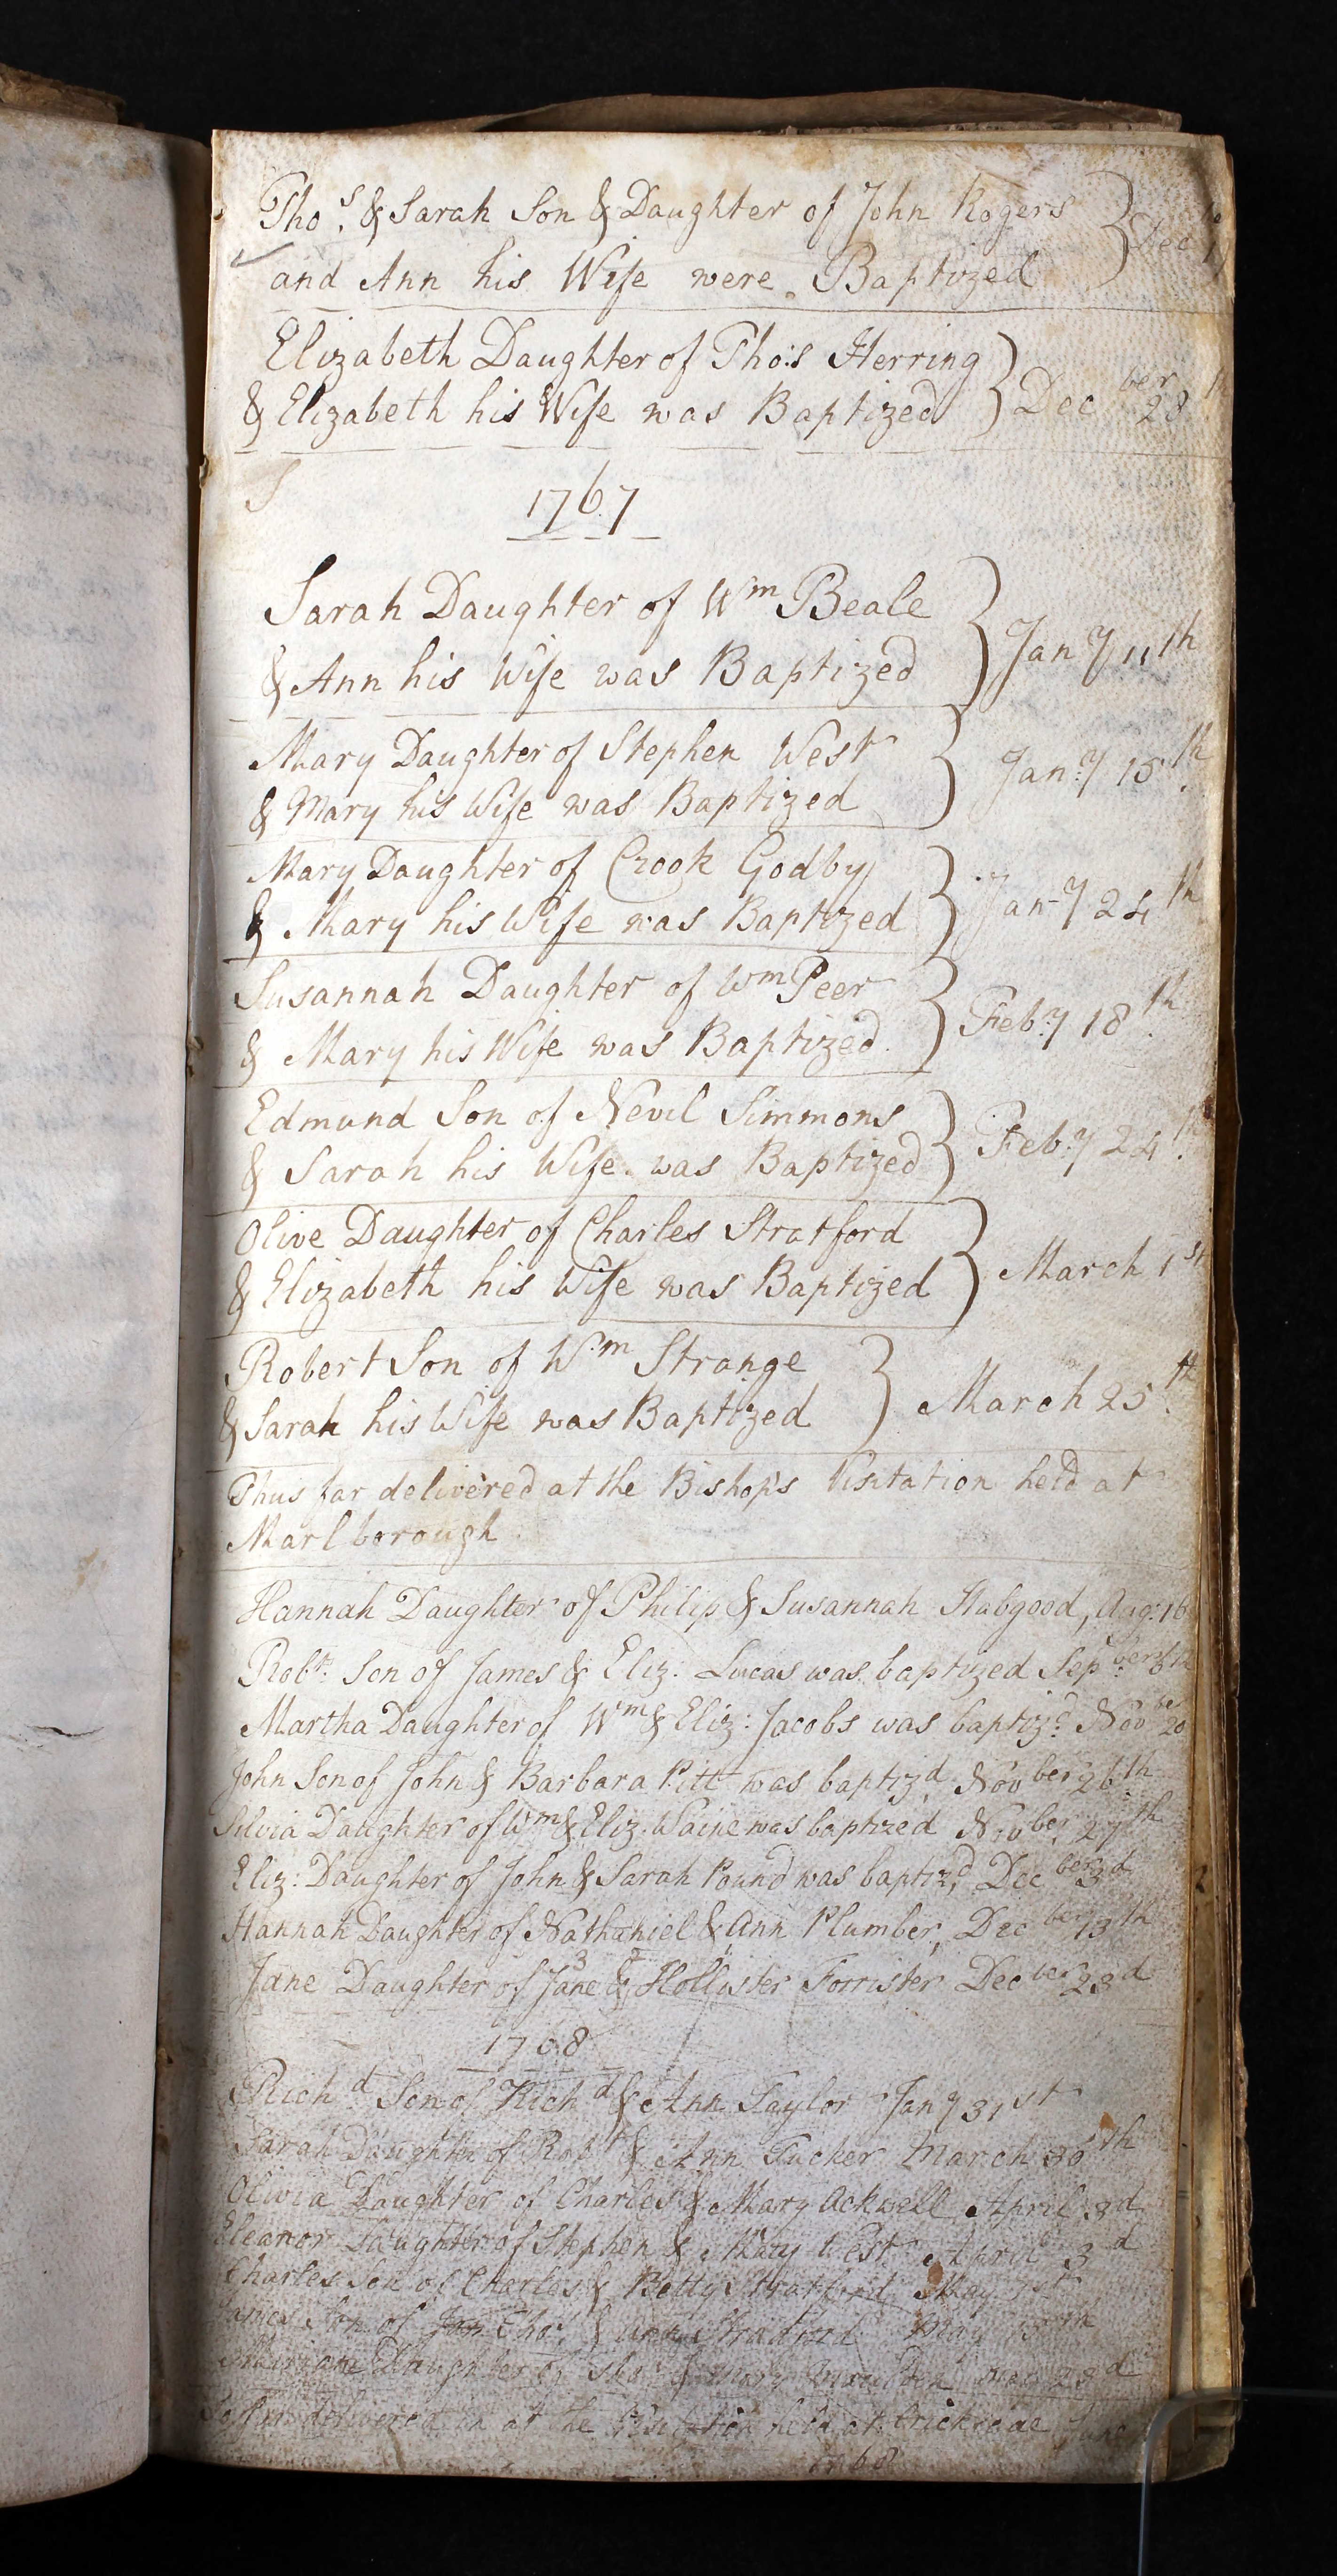 Thos. & Sarah Son & Daughter of John Rogers } Dec
and Ann his Wife were Baptized
Elizabeth Daughter of Tho:s Herring
& Elizabeth his Wife was Baptized } Decber 28th
1767
Sarah Daughter of Wm Beale
& Ann his Wife was Baptized } Jany 11th
Mary Daughter of Stephen West
& Mary his Wife was Baptized } Jan:y 15th.
Mary Daughter of Crook Godby
& Mary his Wife was Baptized } Jan-y 24th
Susannah Daughter of Wm Peer
& Mary his Wife was Baptized. } Feb:y 18th.
Edmund Son of Nevil Simmons
& Sarah his Wife was Baptized } Feb:y 24th.
Olive Daughter of Charles Stratford
& Elizabeth his Wife was Baptized } March 1st
Robert Son of W.m Strange
& Sarah his Wife was Baptized } March 25th.
Thus far delivered at the Bishops Visitation held at
Marlborough
Hannah Daughter of Philip & Susannah Habgood, Aug: 16
Robt. Son of James & Eliz: Lucas was baptized Sepber 6th
Martha Daughter of Wm & Eliz: Jacobs was baptizd Novber 20
John Son of John & Barbara Pitt was baptizd, Novber 26th
Silvia Daughter of Wm & Eliz. Waine was baptized Novber 27th
Eliz: Daughter of John & Sarah Pound was baptizd, Decber 3d
Hannah Daughter of Nathaniel & Ann Plumber, Decber 13th
Jane Daughter of Jane & Hollister Forrister Decber 23d
1768
Richd Son of Richd & Ann Taylor Jany 31st
Sarah Daughter of Robt & Ann Tucker March 30th
Olivia Daughter of Charles & Mary Ackwell April 3d
Eleanor Daughter of Stephen & Mary West April 3d
Charles Son of Charles & Betty Stratford May 1st
James Son of Thos. & Ann Stradford May
Daughter of Thos & Mary May 23d
So far delivered in at the Visitation held at Crickdae June
1768